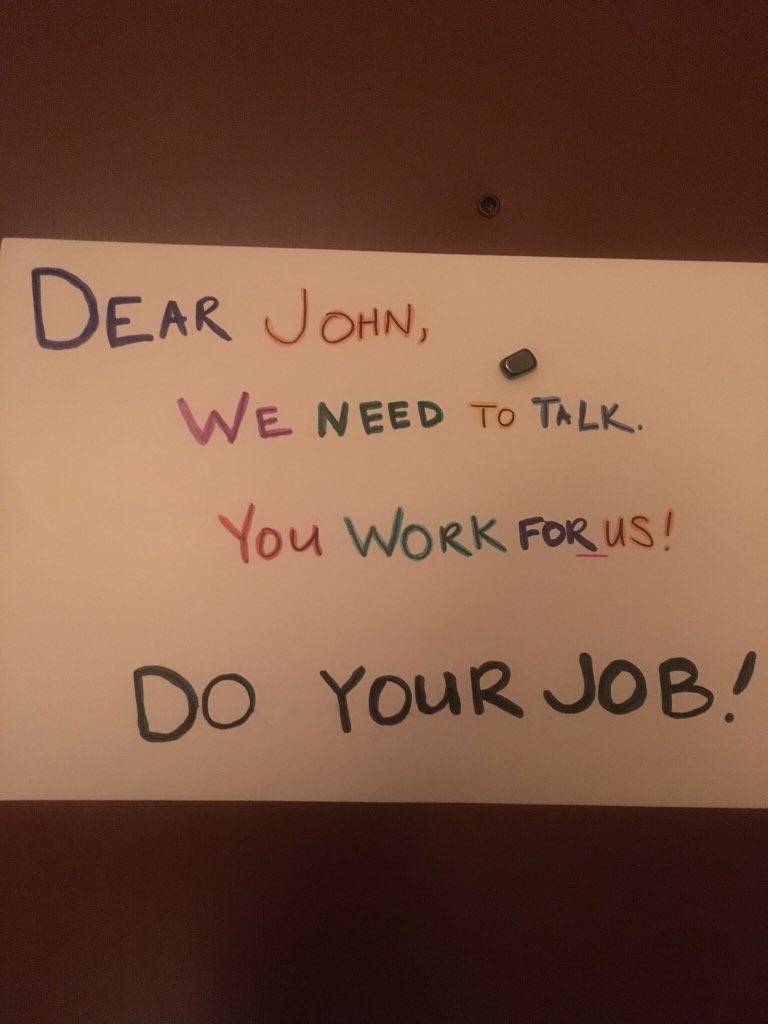 DEAR JOHN,
WE NEED TO TALK.
YOU WORK FOR US!
DO YOUR JOB!